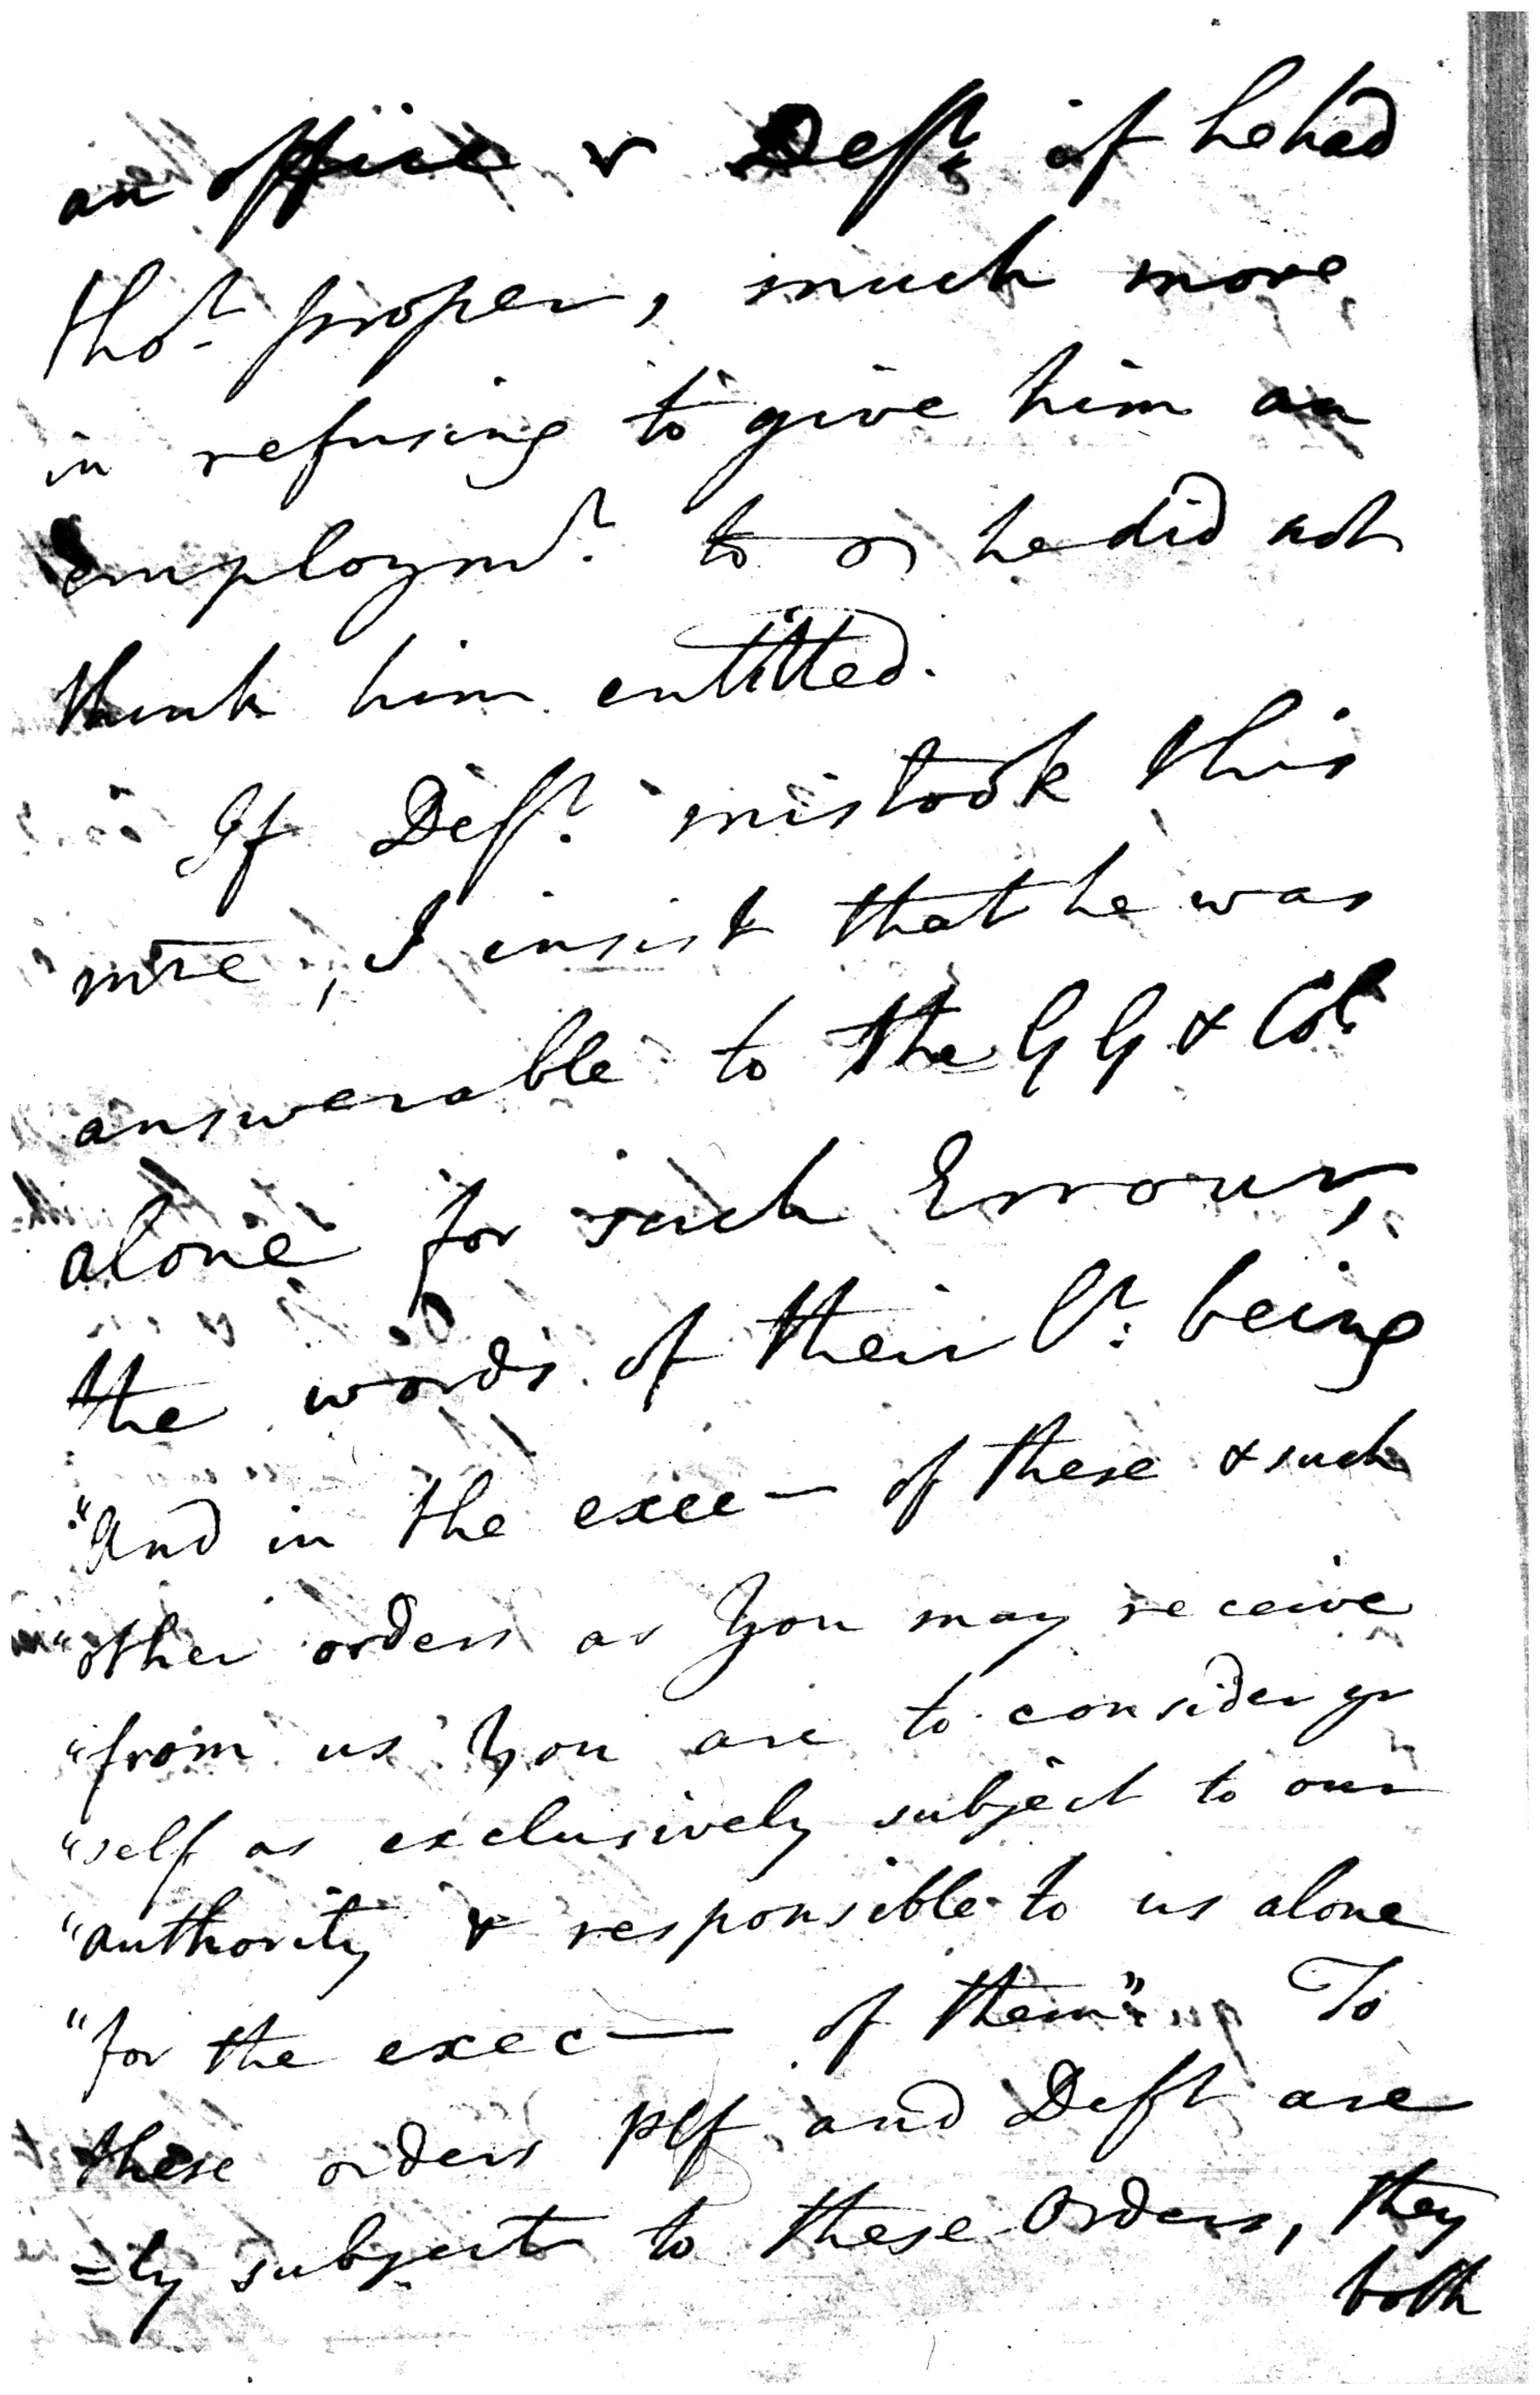 an office & Deft. if he had
thot. proper, much more
in refusing to give him an
employmt. to he did not
think him entitled.
If Deft. mistook this
, I insist that he was
answerable to the GG & Col.
alone for such Errour,
the words of their Or. being
"And in the exec— of these & such
"other orders as You may receive
"from us You are to consider yr
"self as exclusively subject to our
"authority & responsible to us alone
"for the exec— of them". To
these orders plf and Deft are
=ly subject to these Orders, they
both